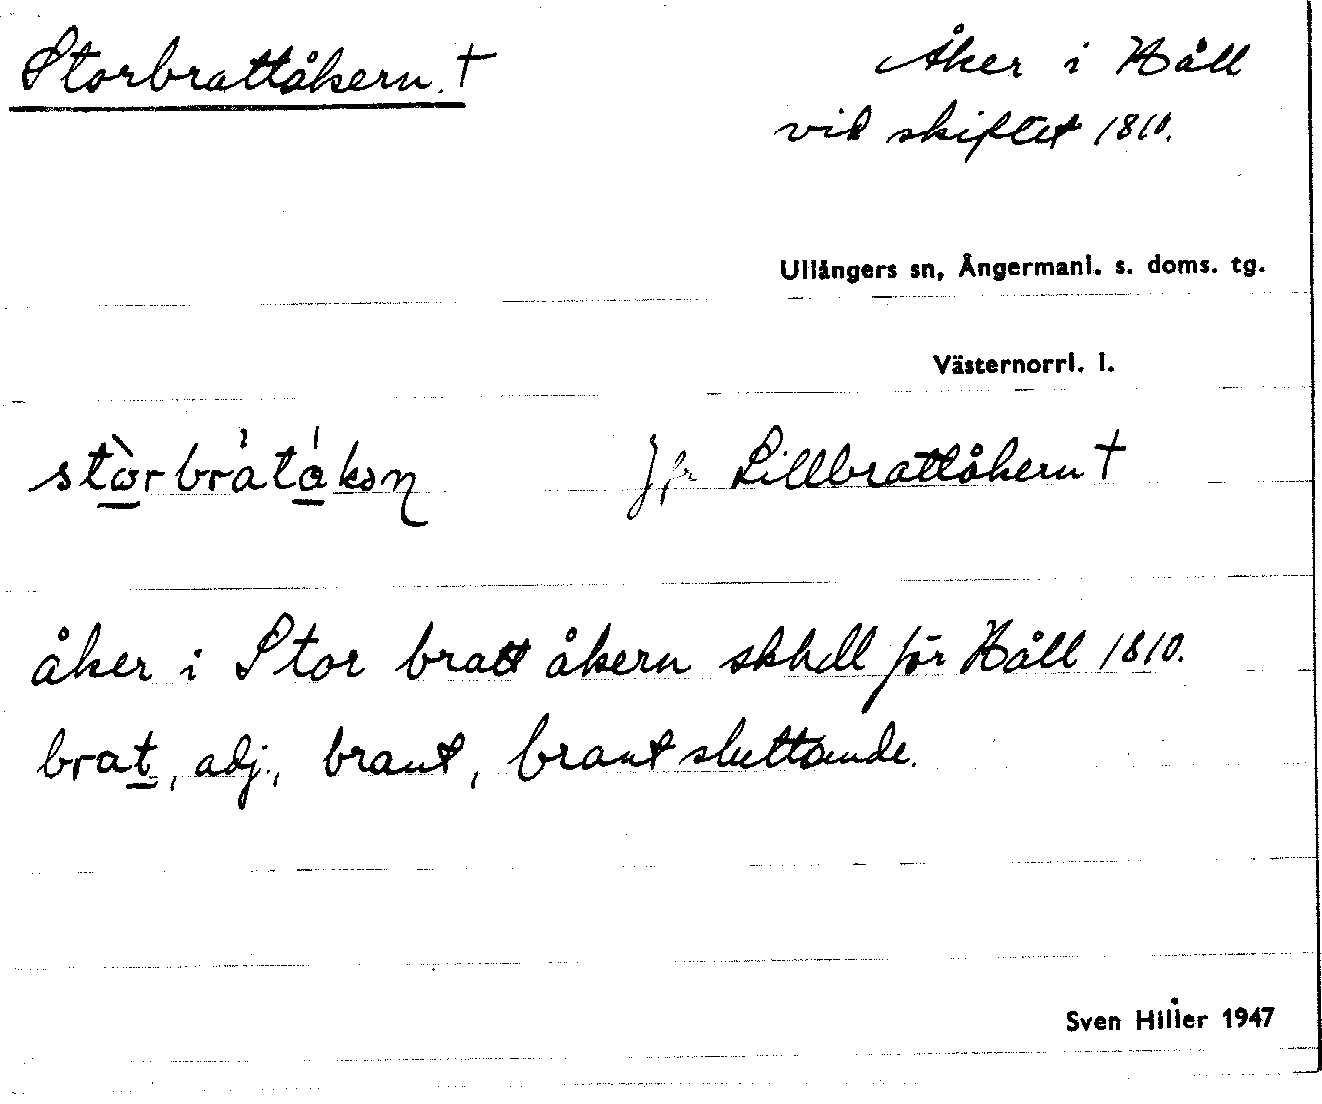 Storbrattåkern. †
Åker i Håll
vid skiftet 1810.
Ullångers sn, Ångermanl. s. doms. tg.
Västernorrl. l.
Jfr Lillbrattåkern †
åker i Stor bratt åkern skhdl för Håll 1810.
brat, adj., brant, brant sluttande.
Sven Hiller 1947